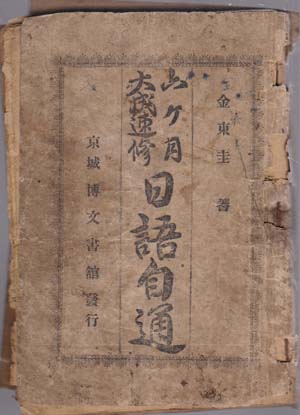 金東圭 著
六ケ月
大成速修
日語自通
京城 博文書館 發行